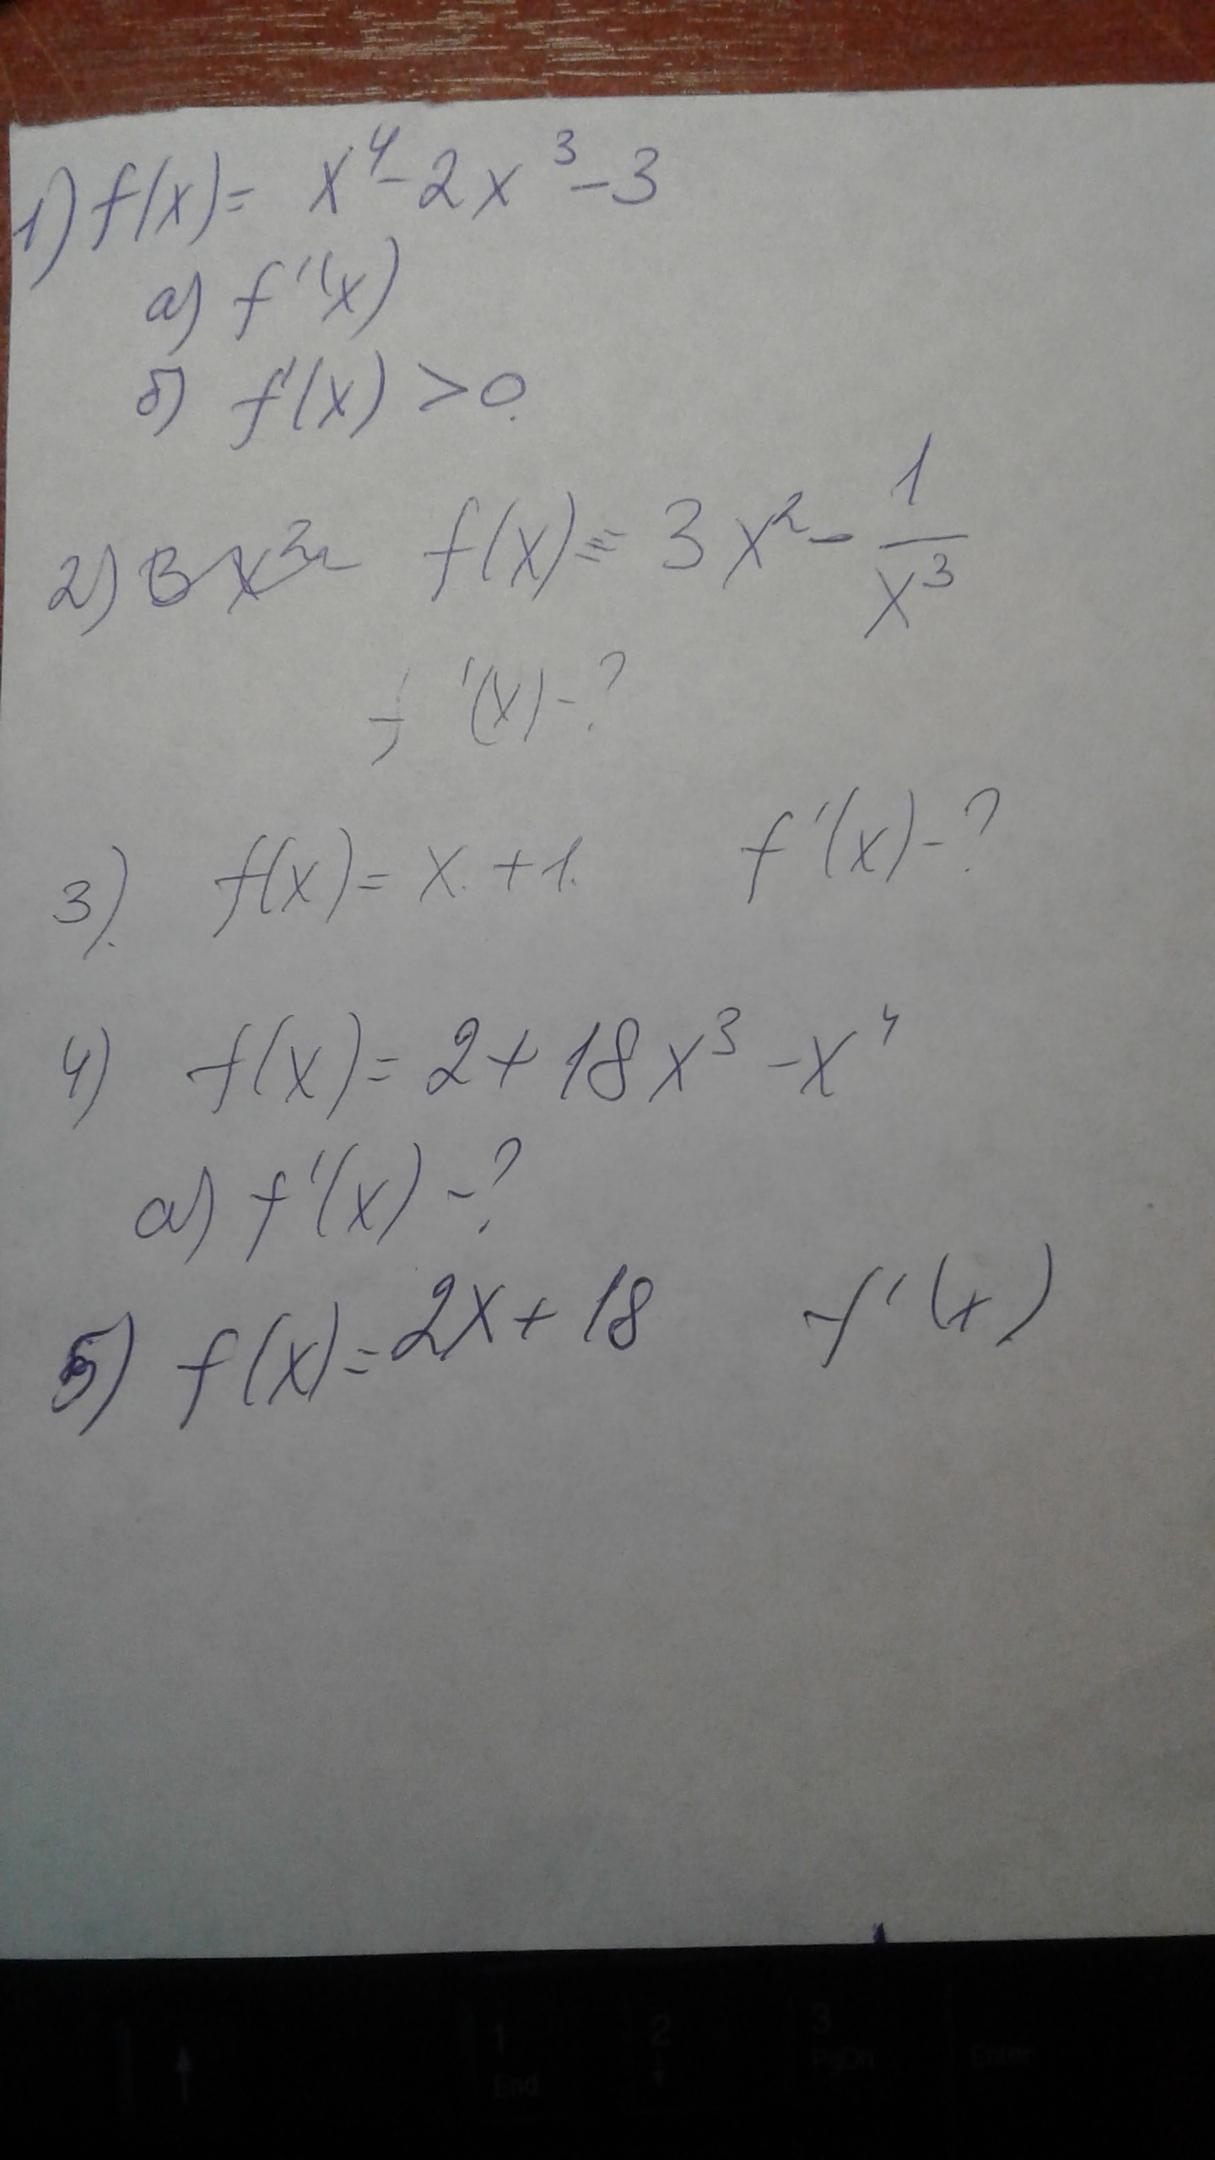 1) f(x) = x⁴ - 2x³ - 3
а) f'(x)
б) f'(x) > 0
2) 3x² f(x) = 3x² - 1/x³
f'(x) - ?
3) f(x) = x + 1. f'(x) - ?
4) f(x) = 2 + 18x³ - x⁴
а) f'(x) - ?
5) f(x) = 2x + 18 f'(x)
1
End
2
↓
3
PgDn
Enter
↑